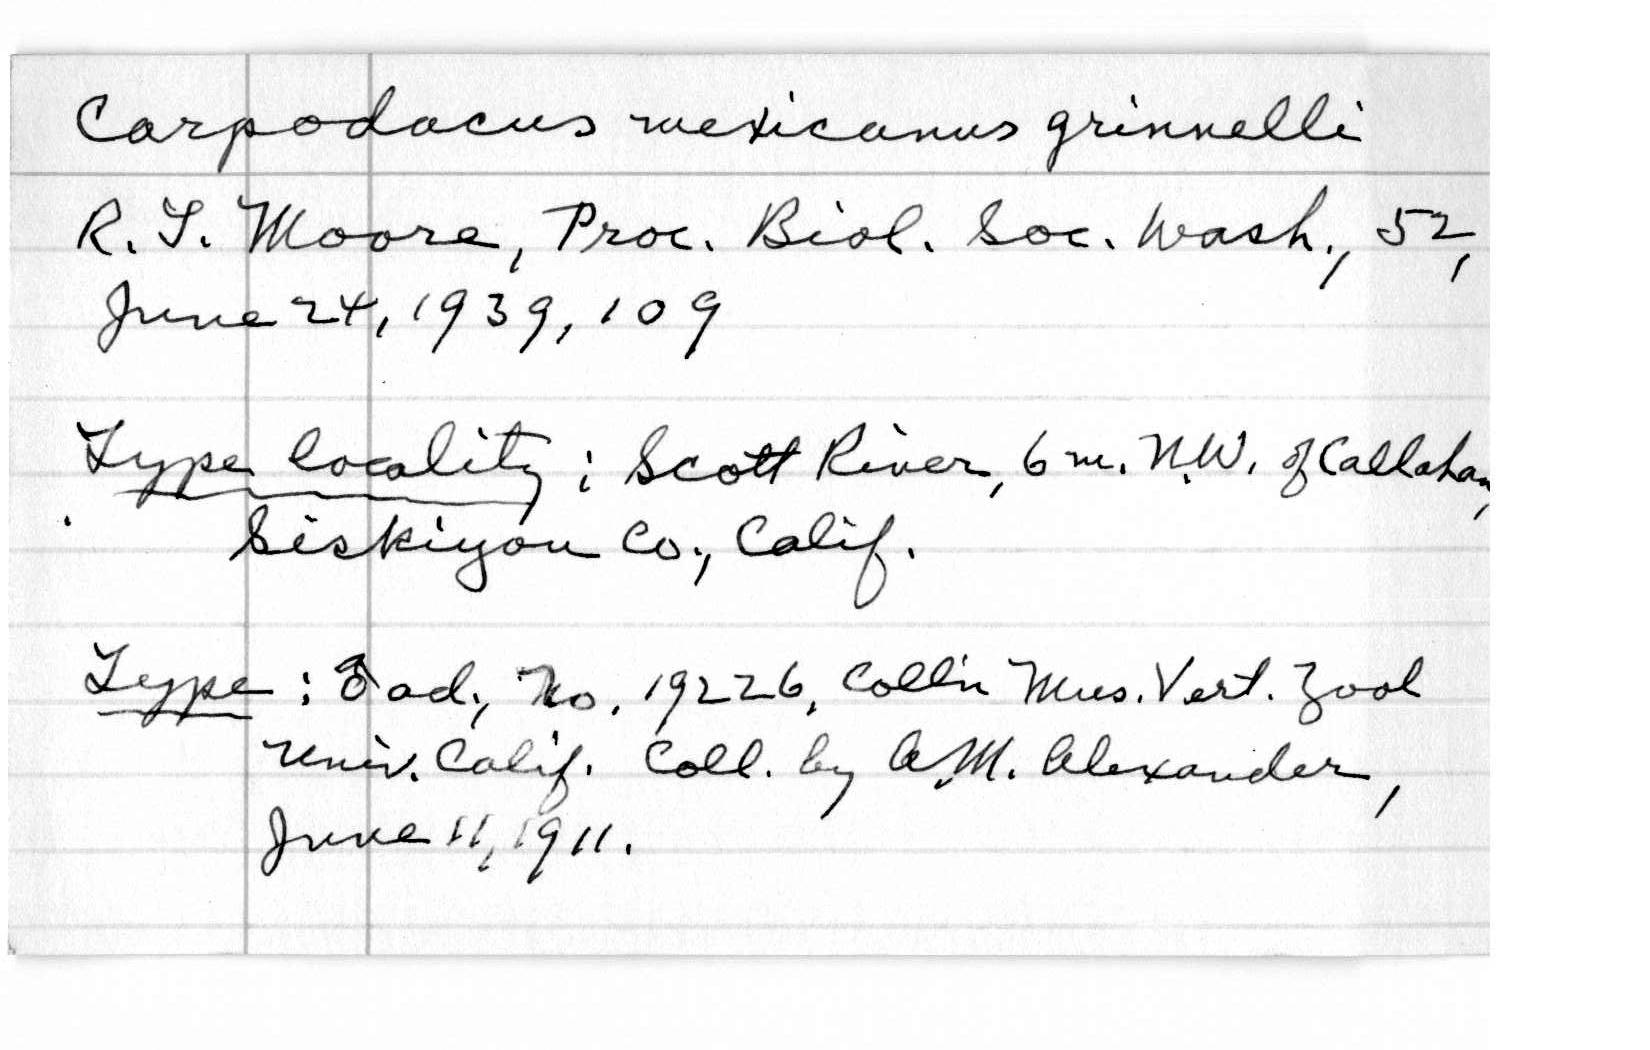 Carpodacus mexicanus grinnelli
R. T. Moore, Proc. Biol. Soc. Wash., 52,
June 24, 1939, 109
Type locality: Scott River, 6 m. N.W. of Callahan,
Siskiyou Co., Calif.
Type: ♂ ad., No. 19226, Coll'n Mus. Vert. Zool
Univ. Calif. Coll. by A.M. Alexander,
June 11, 1911.